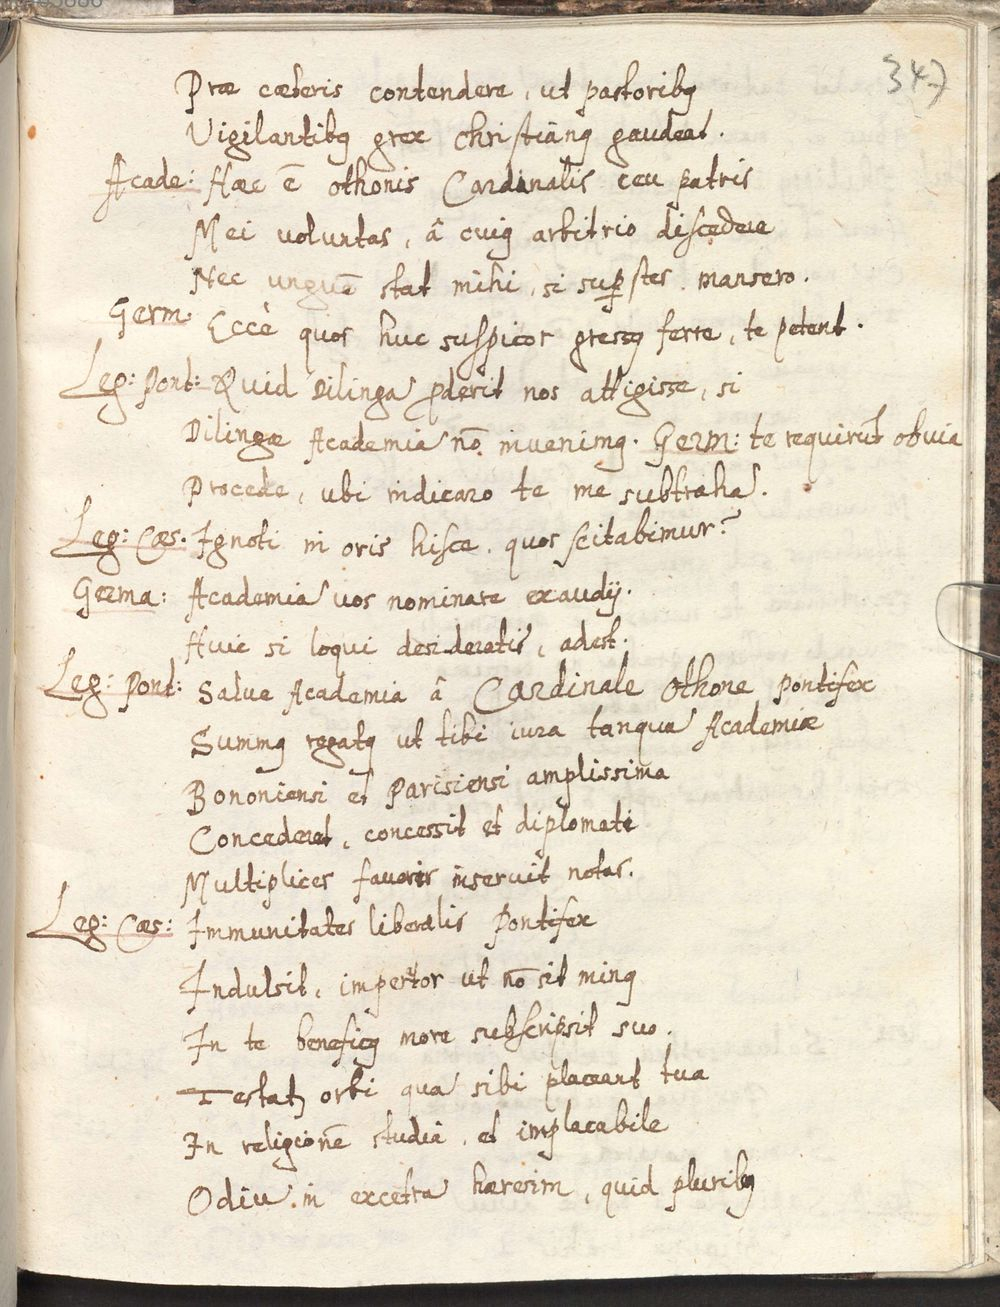 347
Præ cæteris contendere, ut pastoribꝰ
Vigilantibꝰ grex christianꝰ gaudeat.
Acade: Hæc ē othonis Cardinalis ceu patris
Mei voluntas, â cuiꝰ arbitrio discedere
Nec unguē stat mihi, si suꝑstes mansero.
Germ. Eccè quos huc suspicor gressꝰ ferre, te petent.
Leg: Pont: Quid Dilingā ꝓderit nos attigisse, si
Dilingæ Academiā nō invenimꝰ. Germ: te requirūt obvia
Procede, ubi indicaro te me subtrahā.
Leg: Cæs. Ignoti in oris hisce quos scitabimur?
Germa: Academiā vos nominare exaudij.
Huic si loqui desideratis, adest.
Leg: Pont: Salve Academia â Cardinale Othone pontifex
Summꝰ rogatꝰ ut tibi iura tanquā Academiæ
Bononiensi et Parisiensi amplissima
Concederet, concessit et diplomati
Multiplices favoris inseruit notas.
Leg: Cæs: Immunitates liberalis Pontifex
Indulsit, imperator ut nō sit minꝰ
In te beneficꝰ more subscripsit suo.
Testatꝰ orbi quā sibi placeant tua
In religionē studia, et implacabile
Odiū in excetrā hæresim, quid pluribꝰ